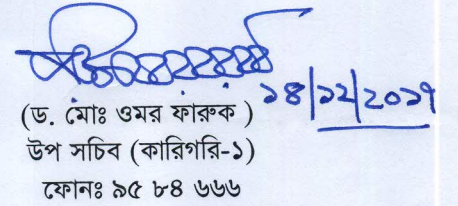 ১৪/১২/২০১৭
(ড. মোঃ ওমর ফারুক )
উপ সচিব (কারিগরি-১)
ফোনঃ ৯৫ ৮৪ ৬৬৬